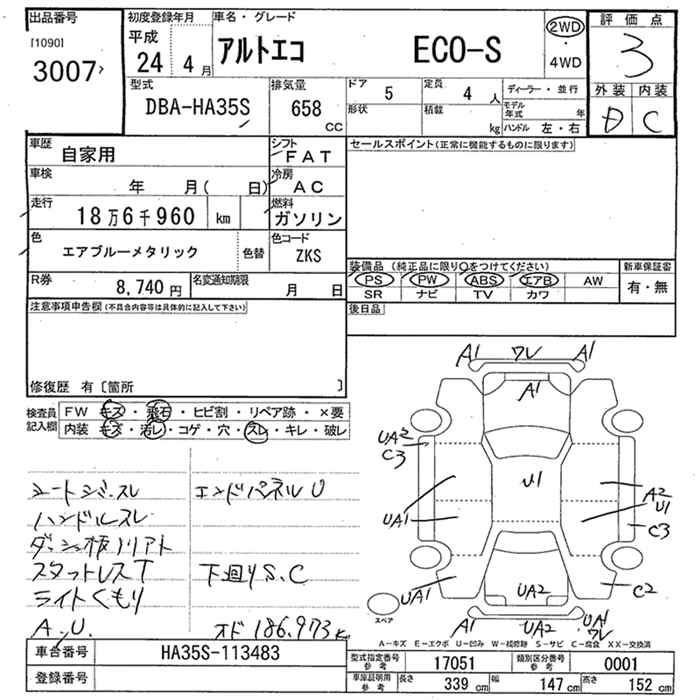 出品番号
[1090]
3007
初度登録年月
平成
24 4 月
車名・グレード
アルトエコ ECO-S
2WD
・
4WD
評価点
3
外装 内装
D C
型式
DBA-HA35S
排気量
658
CC
ドア 5
定員 4 人
形状
積載 kg
ディーラー・並行
モデル年式 年
ハンドル 左・右
車歴 自家用
シフト FAT
車検 年 月( 日)
冷房 AC
走行 18万6千960 km
燃料 ガソリン
色 エアブルーメタリック 色替
色コード ZKS
R券 8,740 円
名変通知期限 月 日
セールスポイント(正常に機能するものに限ります)
装備品 (純正品に限り○をつけてください)
新車保証書
PS PW ABS エアB AW
有・無
SR ナビ TV カワ
後日品
注意事項申告欄 (不具合内容等は具体的に記入して下さい)
修復歴 有〔箇所 〕
検査員記入欄
FW キズ・飛石・ヒビ割・リペア跡・×要
内装 キズ・汚レ・コゲ・穴・スレ・キレ・破レ
シートシミ・スレ
ハンドルスレ
ダッシュ板ノリアト
スタットレスT
ライトくもり
A.U.
エンドパネルU
下廻りS.C
オド186,973k
A1 ワレ A1
A1
UA2
C3
U1
A2
U1
UA1
C3
UA1
UA2
C2
UA2
UA1
ワレ
スペア
A-キズ E-エクボ U-凹み W-補修跡 S-サビ C-腐食 XX-交換済
車台番号 HA35S-113483
登録番号
型式指定番号 参考 17051
類別区分番号 参考 0001
車庫証明用 参考
長さ 339 cm
幅 147 cm
高さ 152 cm